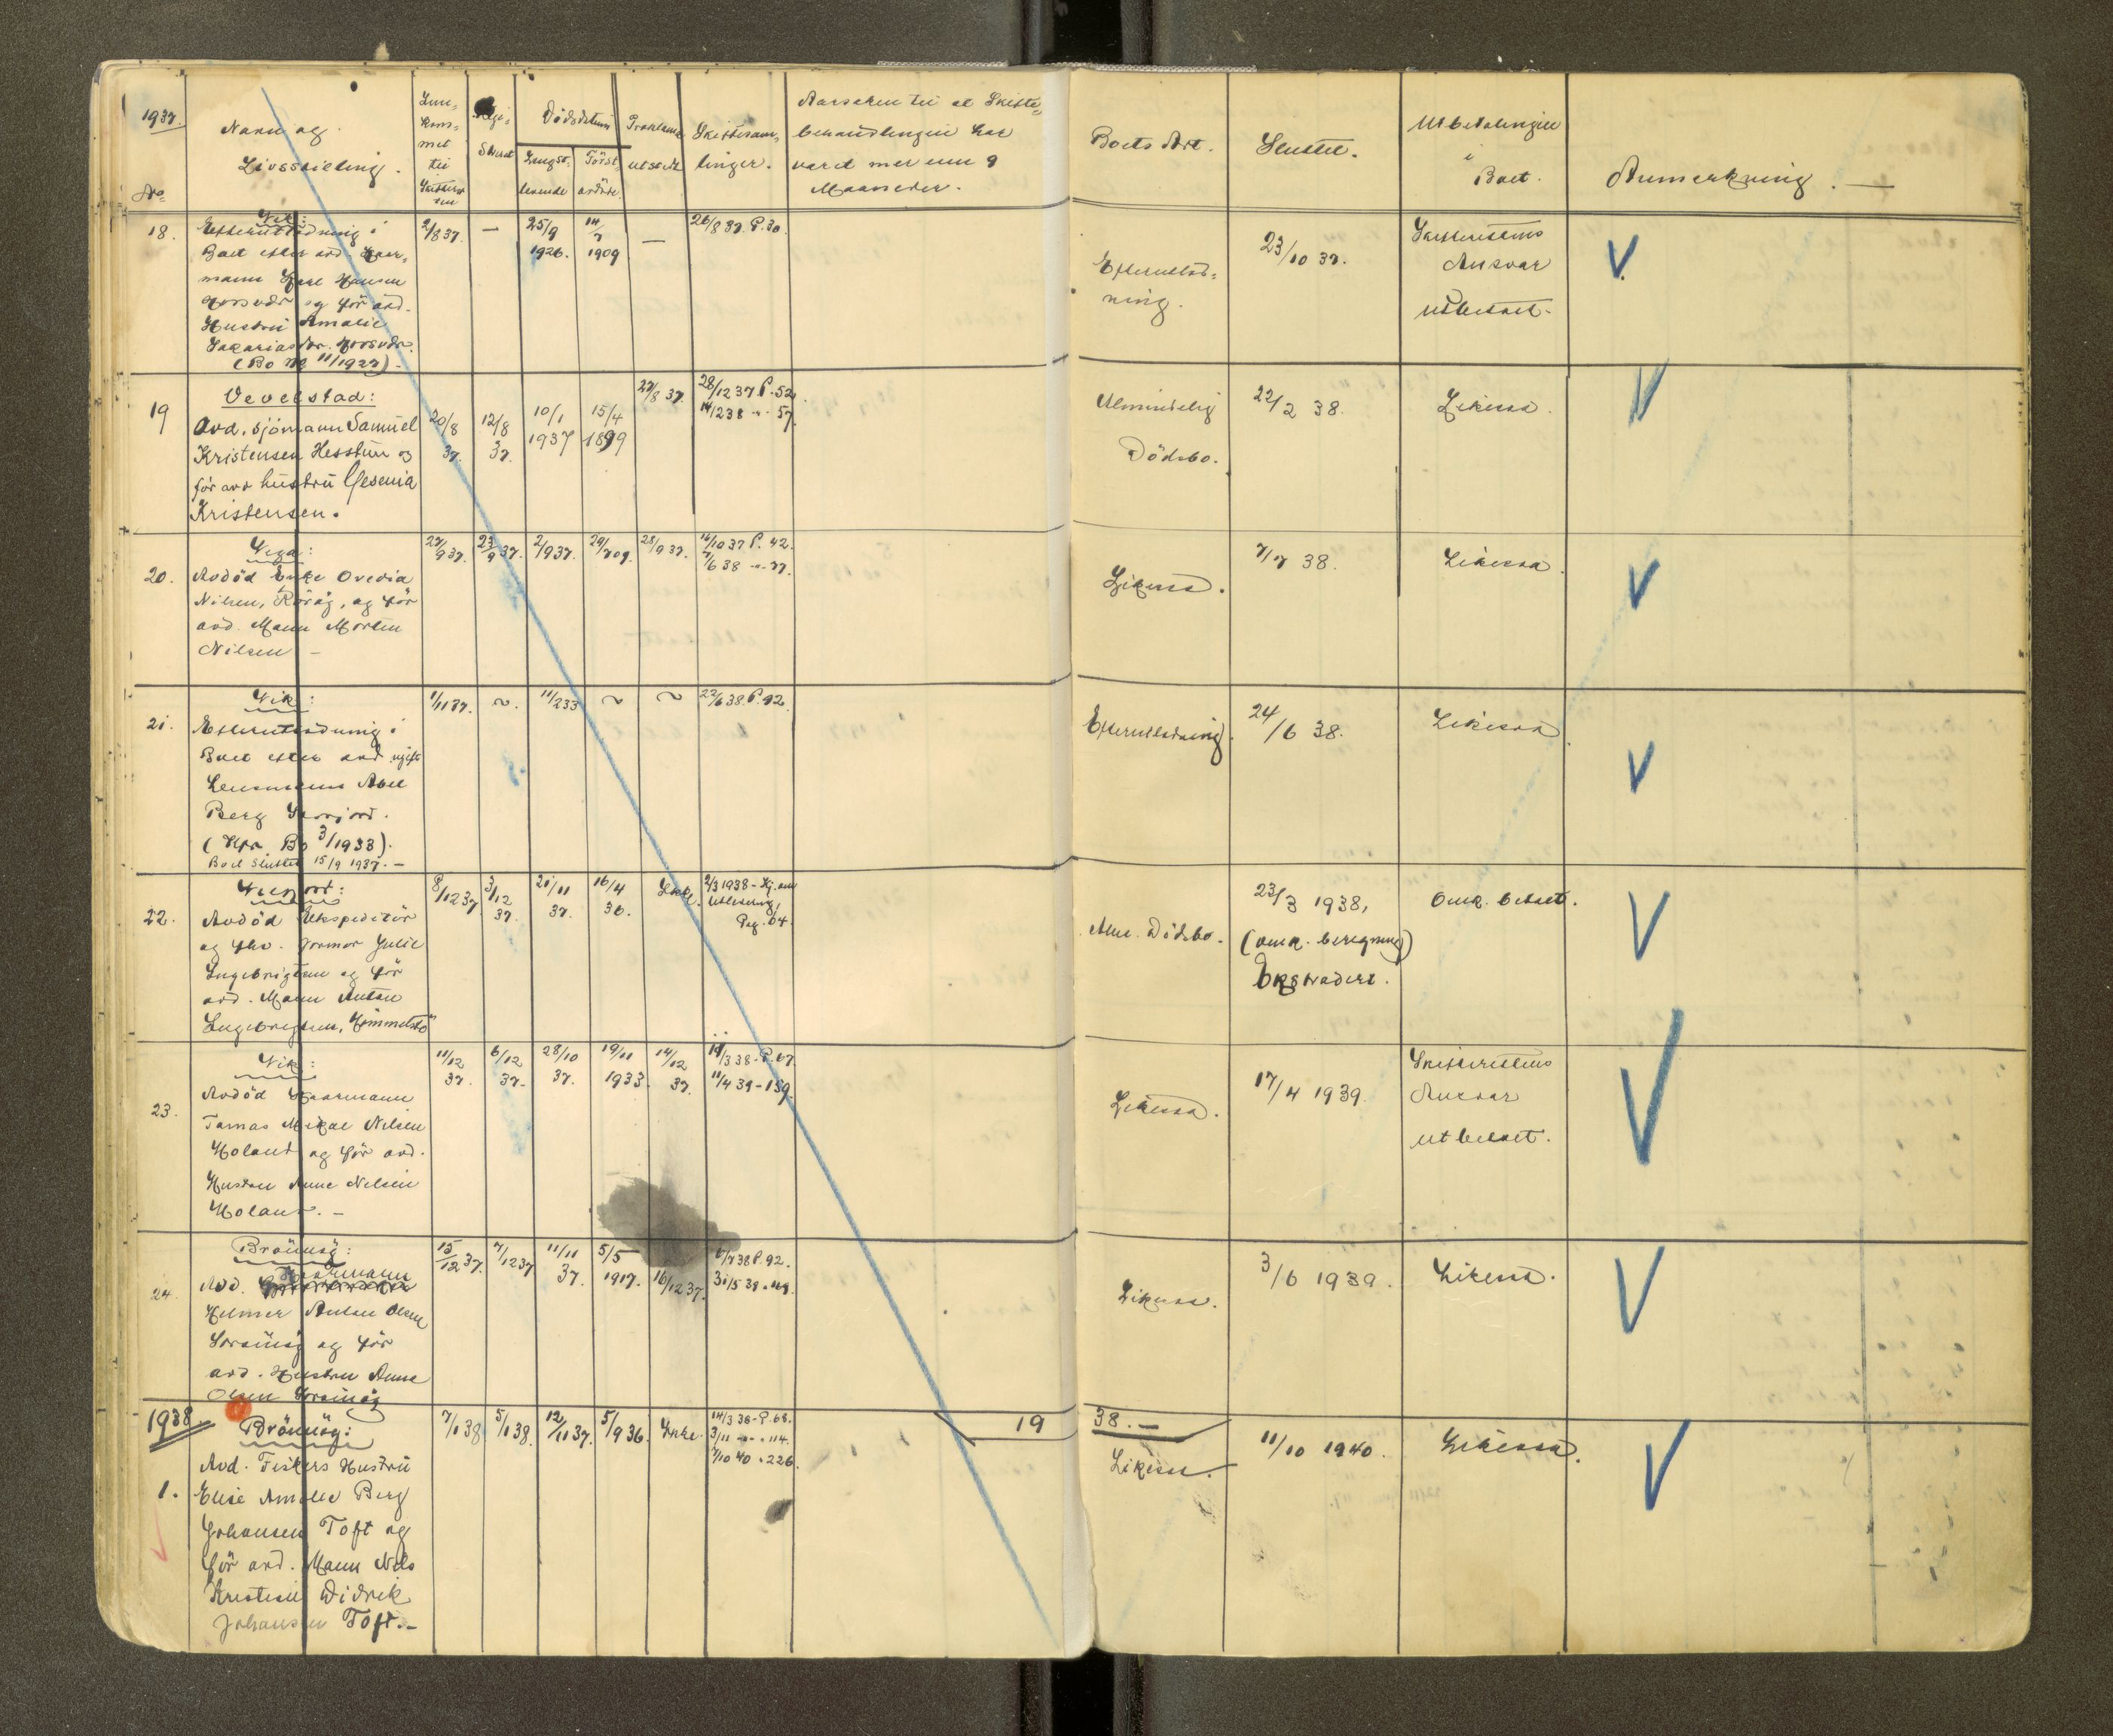 1937.
No
Navn og
Livsstilling.
Inn-
kom-
met
til
Skifteret-
ten
Regi-
strert
Dödsdatum
Lengst-
levende
Först
avdöde
Proklama
utstedt
Skiftesam-
linger.
Aarsaken til at Skifte-
behandlingen har
varet mer enn 9
Maaneder.
Boets Art.
Sluttet.
Utbetalingen
i
Boet.
Anmerkning. —
18.
Vik:
Efterutlodning i
Boet efter avd. Gaar-
mann
Hansen
og för avd.
Hustru Amalie
Sakariasdr.
(Bo No 11/1927) -
2/8 37.
—
25/9
1926.
14/7
1909
—
26/8 37. P. 30.
Efterutlod-
ning.
23/10 37.
Skifterettens
Ansvar
utbetalt.
19
Vevelstad:
Avd. sjömann Samuel
Kristensen Hesstun og
för avd hustru Gesenia
Kristensen.
20/8
37.
12/8
37.
10/1
1937
15/4
1899
27/8 37.
28/12 37 P. 52.
14/2 38 -"- 57.
Almindelig
Dödsbo.
22/2 38.
Likesaa.
20.
Vega:
Avdöd Enke Ovedia
Nilsen, Rörög, og för
avd. Mann Morten
Nilsen -
27/9 37.
23/9 37.
2/9 37.
29/7 09.
28/9 37.
16/10 37 P. 42.
7/6 38 -"- 77.
Likesaa.
7/7 38.
Likesaa.
21.
Vik:
Efterutlodning i
Boet efter avd ugift
Lensmann
Berg
(Kfr. Bo 3/1933).
Boet Sluttet 15/9 1937. -
1/11 37.
~.
11/2 33
~
~
22/6 38. P. 92.
Efterutlodning.
24/6 38.
Likesaa.
22.
Avdöd Ekspeditör
og fhv. Jormor Julie
Ingebrigtsen og för
avd. Mann Anton
Ingebrigtsen,
8/12 37
3/12
37.
21/11
37.
16/4
36.
Ikke.
2/3 1938 - Kj. om
utlevering,
Pag. 64.
Alm. Dödsbo.
23/3 1938,
(omk. beregning)
Ekstradert.
Omk. betalt.
23.
Vik:
Avdöd Gaarmann
Tomas Mikal Nilsen
Holand og för avd.
Hustru Anne Nilsen
Holand. -
11/12
37.
6/12
37-
28/10
37.
19/11
1933.
14/12
37.
14/3 38 - P. 67.
11/4 39 - 159.
Likesaa.
17/4 1939.
Skifterettens
Ansvar
utbetalt.
24.
Brönnöy:
Avd. Gaarmann
Helmer Anton Olsen
og för
avd. Hustru Anne
Olsen
15/12 37.
7/12 37
11/11
37.
5/5
1917.
16/12 37.
6/7 38 P. 92.
Likesaa.
3/6 1939.
Likesaa.
1938
1.
Brönnöy:
Avd. Fiskers Hustru
Elise Amalie Berg
Johansen Toft og
för avd. Mann Nils
Kristian Didrik
Johansen Toft. -
7/1 38
5/1 38.
12/11 37.
5/9 36.
Ikke.
14/3 38 - P. 68.
3/11 -"- " 114.
7/10 40 " 226.
19
38. —
Likesaa.
11/10 1940.
Likesaa.